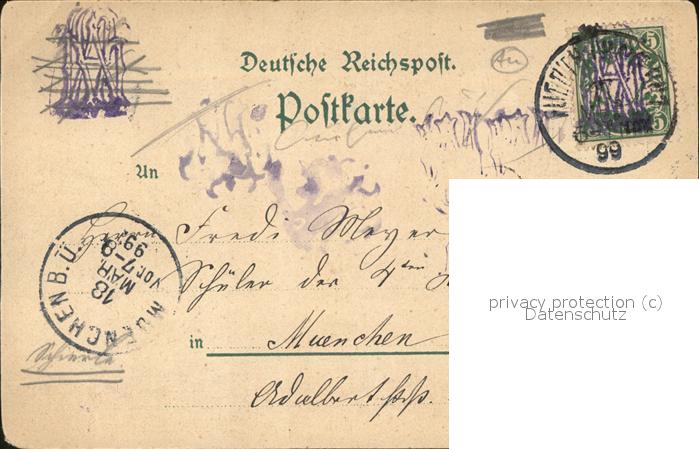 Deutsche Reichspost.
Postkarte.
An
5
5
99
Herrn Fredi Meyer
Schüler der 4ten
in Muenchen
Adalbertstr.
MUENCHEN B.U.
18
MÄR.
VOR. 7-8
99.
privacy protection (c)
Datenschutz